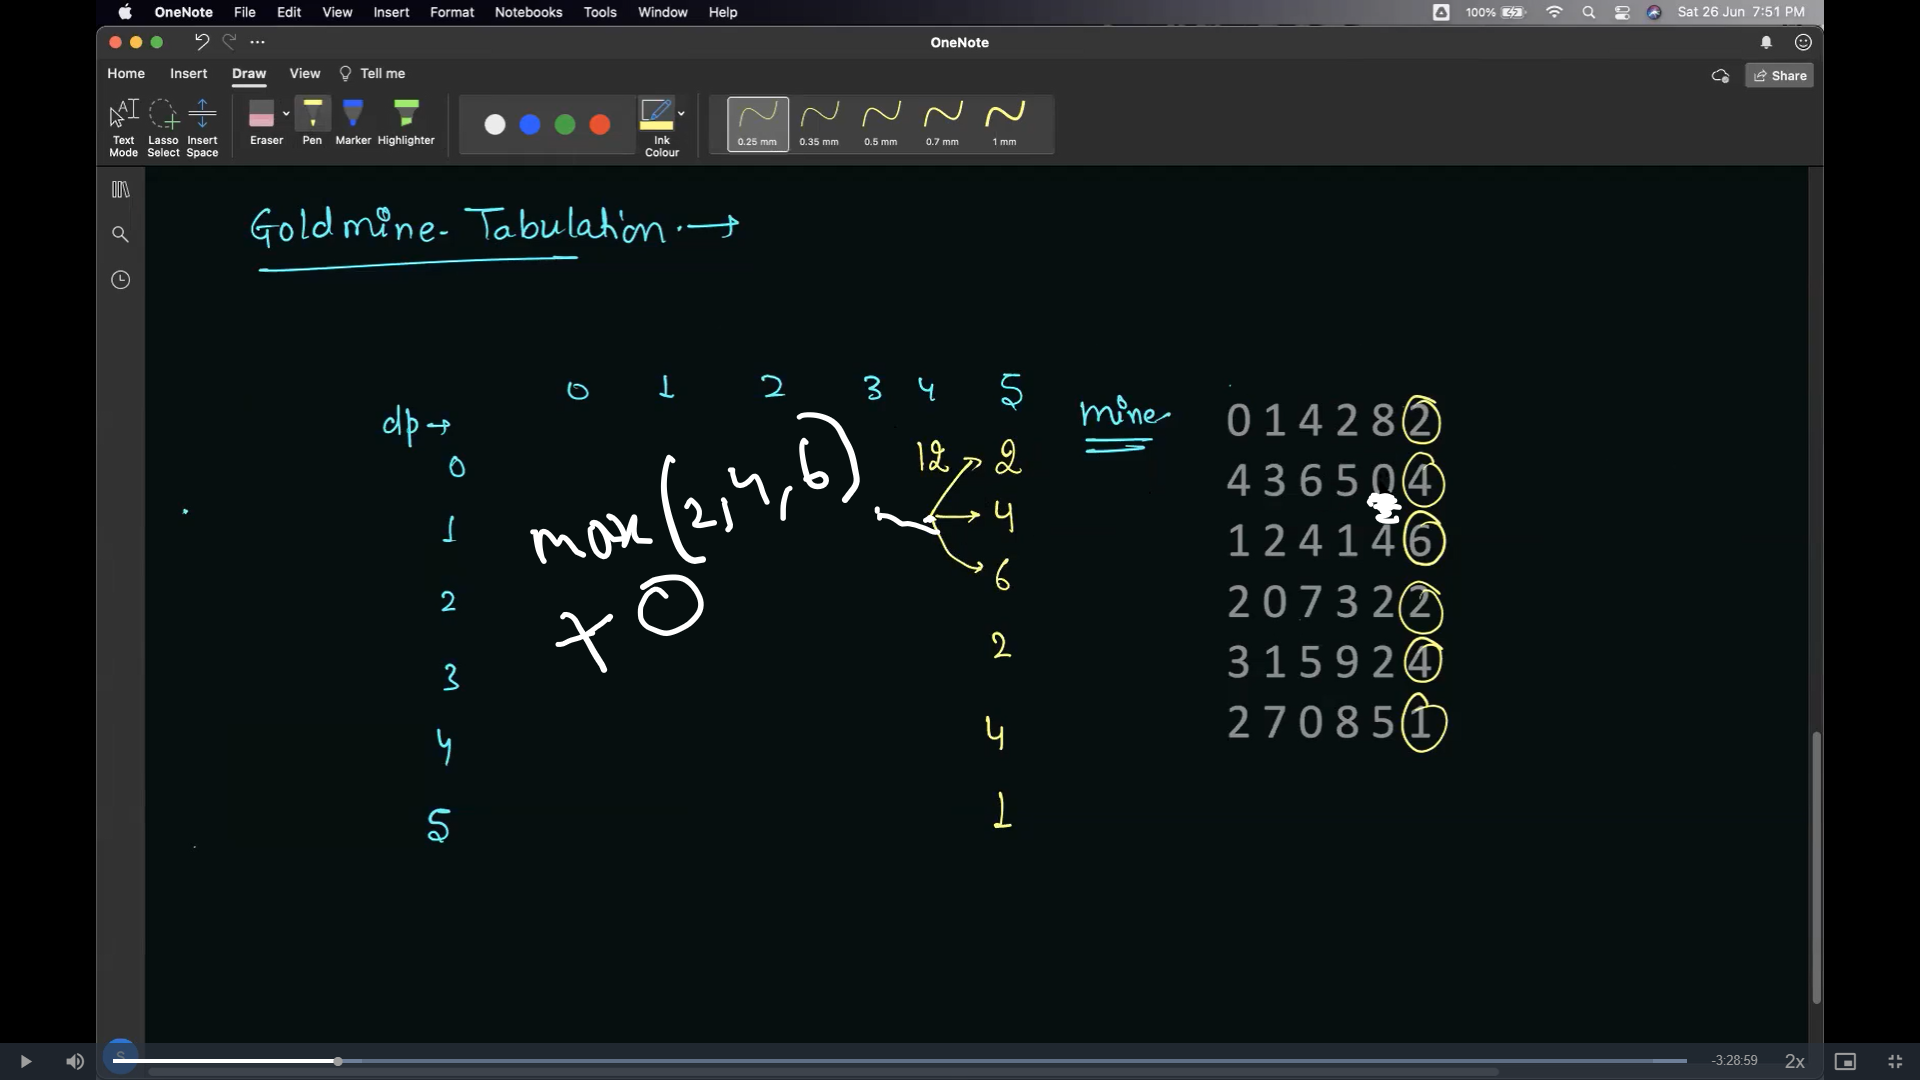 OneNote File Edit View Insert Format Notebooks Tools Window Help 100% Sat 26 Jun 7:51 PM
OneNote
Home Insert Draw View Tell me Share
Text Mode Lasso Select Insert Space Eraser Pen Marker Highlighter Ink Colour 0.25 mm 0.35 mm 0.5 mm 0.7 mm 1 mm
Goldmine - Tabulation. →
0 1 2 3 4 5
dp →
0 12 2
1 max (2, 4, 6) 4
+ 0 6
2
3 2
4 4
5 1
mine
0 1 4 2 8 2
4 3 6 5 0 4
1 2 4 1 4 6
2 0 7 3 2 2
3 1 5 9 2 4
2 7 0 8 5 1
S -3:28:59 2x